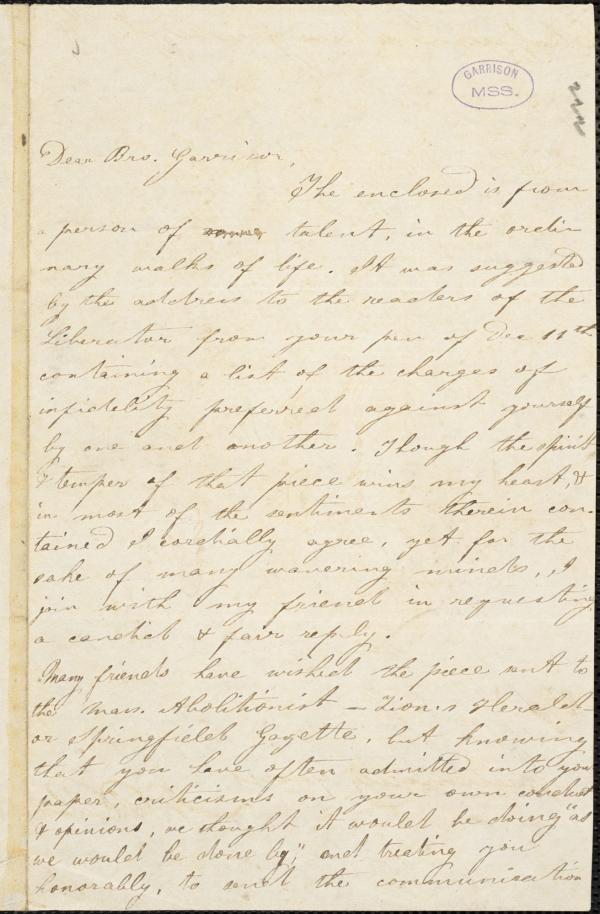 GARRISON
MSS.
Dear Bro. Garrison,
The enclosed is from
a person of talent, in the ordi
nary walks of life. It was suggested
by the address to the readers of the
Liberator from your pen of Dec 11th
containing a list of the charges of
infidelity preferred against yourself
by one and another. Though the spirit
& temper of that piece wins my heart, &
in most of the sentiments therein con-
tained I cordially agree, yet for the
sake of many wavering minds, I
join with my friend in requesting
a candid & fair reply.
Many friends have wished the piece sent to
the Mass. Abolitionist – Zion's Herald
or Springfield Gazette, but knowing
that you have often admitted into your
paper, criticisms on your own conduct
& opinions, we thought it would be doing "as
we would be done by", and treating you
honorably, to send the communication